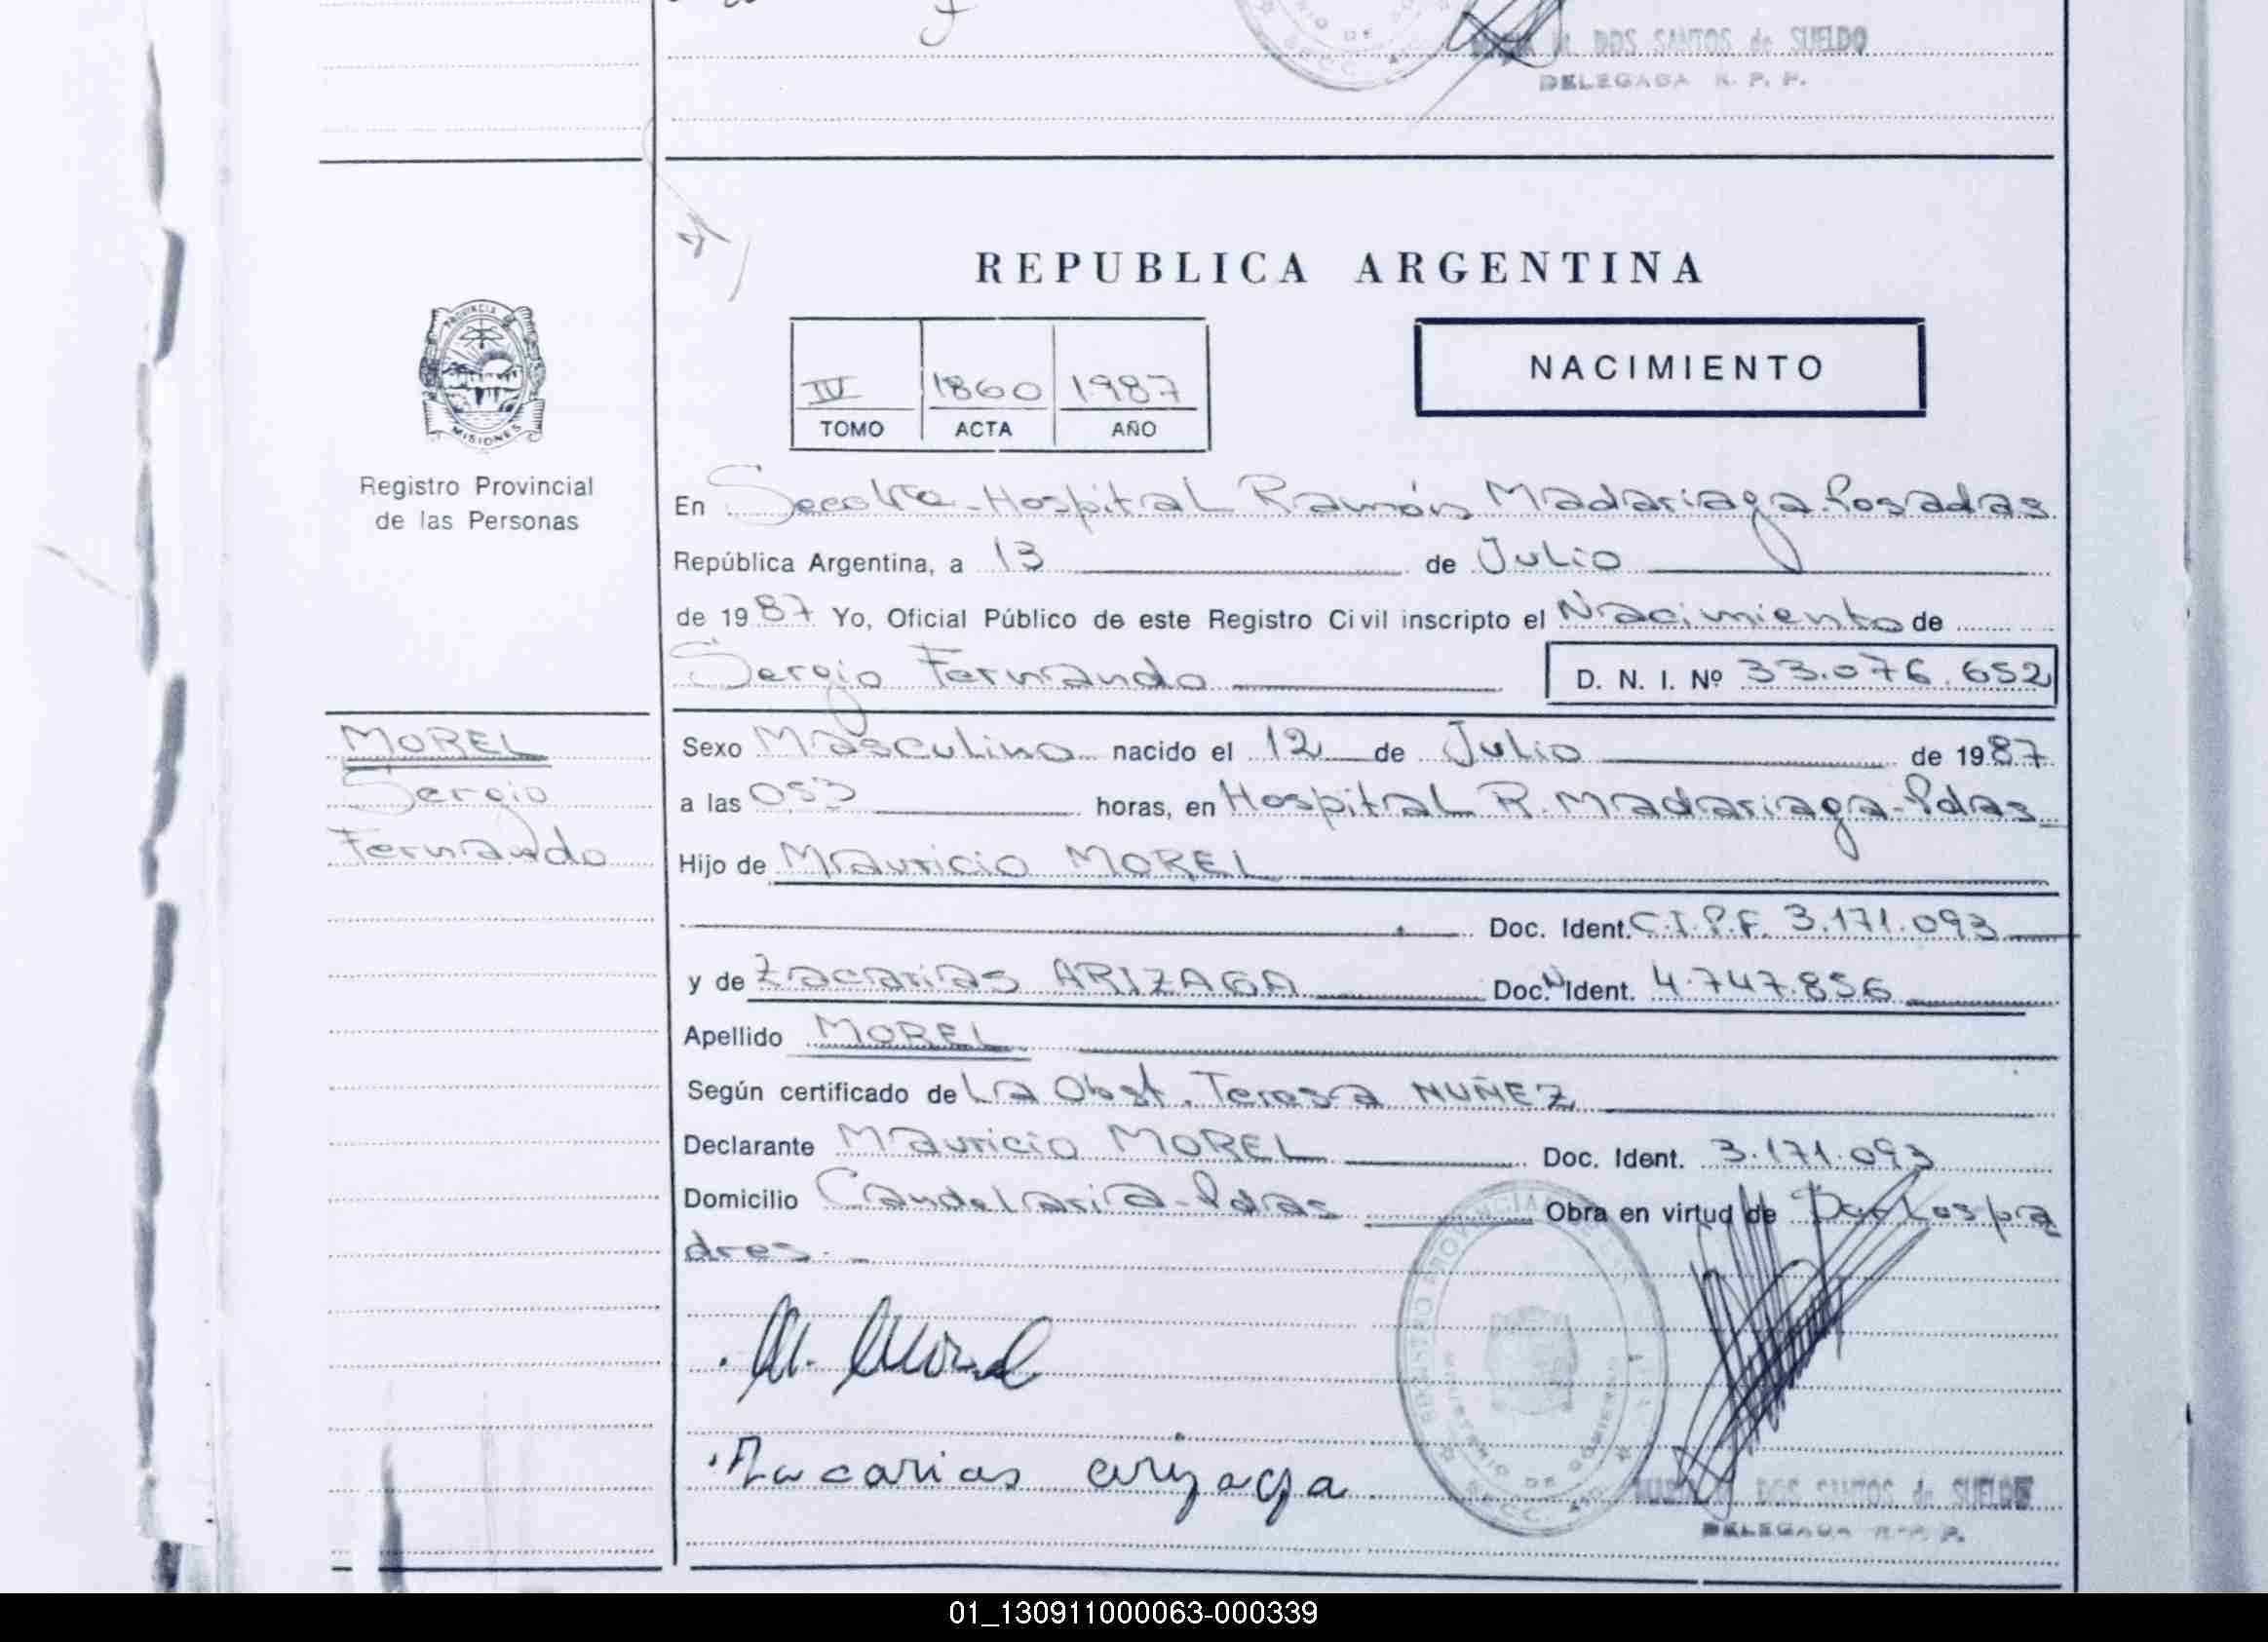 DOS SANTOS de SUELDO
DELEGADA R. P. P.
REPUBLICA ARGENTINA
PROVINCIA DE
MISIONES
Registro Provincial
de las Personas
IV 1860 1987
TOMO ACTA AÑO
NACIMIENTO
En Hospital Ramón Madariaga Posadas
República Argentina, a 13 de Julio
de 1987 Yo, Oficial Público de este Registro Civil inscripto el Nacimiento de
Sergio Fernando D. N. I. Nº 33.076.652
MOREL
Sergio
Fernando
Sexo Masculino nacido el 12 de Julio de 1987
a las 053 horas, en Hospital R. Madariaga-Pdas
Hijo de Mauricio MOREL
Doc. Ident. C.I.P.F. 3.171.093
y de Zacarias ARIZAGA Doc. N Ident. 4.747.856
Apellido MOREL
Según certificado de La Obst. Teresa NUÑEZ
Declarante Mauricio MOREL Doc. Ident. 3.171.093
Domicilio Candelaria-Pdas Obra en virtud de Por Los pa
dres.
M. Morel
Zacarias arizaga
DOS SANTOS de SUELDO
DELEGADA R. P. P.
01_130911000063-000339